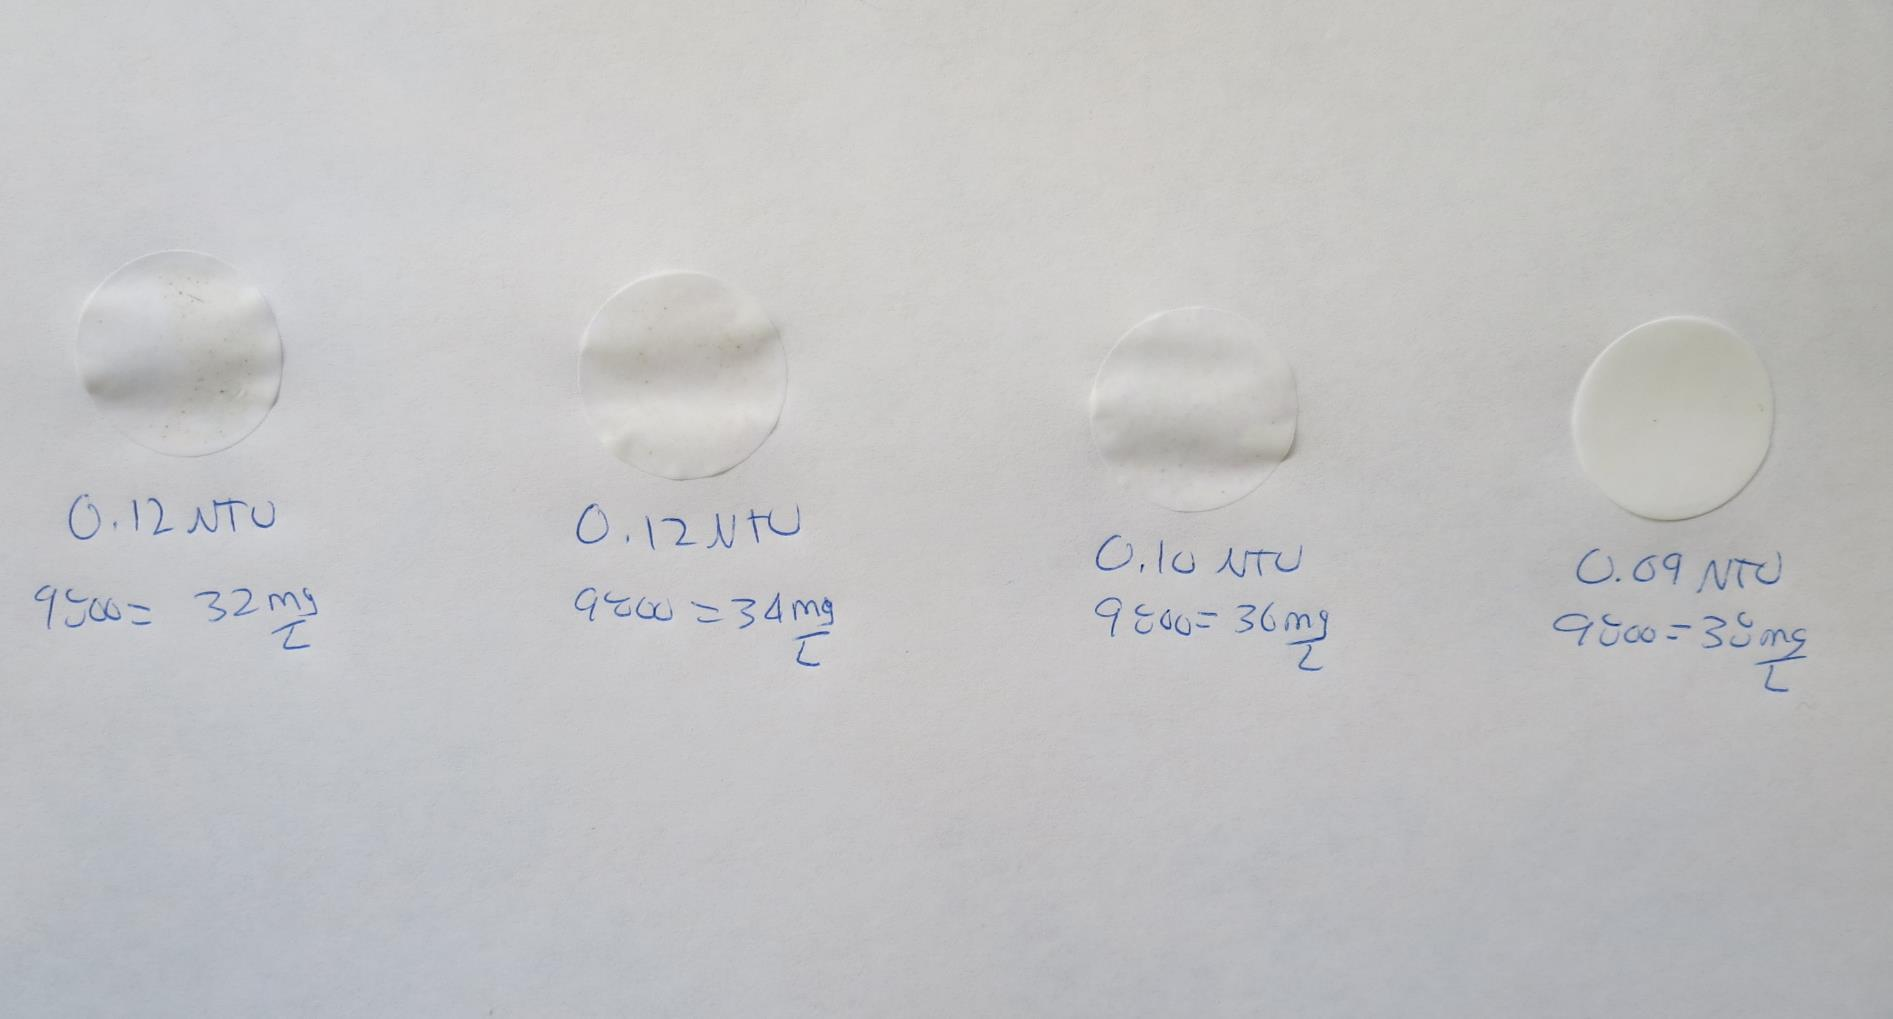 0.12 NTU
9800 = 32 mg/L
0.12 NTU
9800 = 34 mg/L
0.10 NTU
9800 = 36 mg/L
0.09 NTU
9800 = 38 mg/L